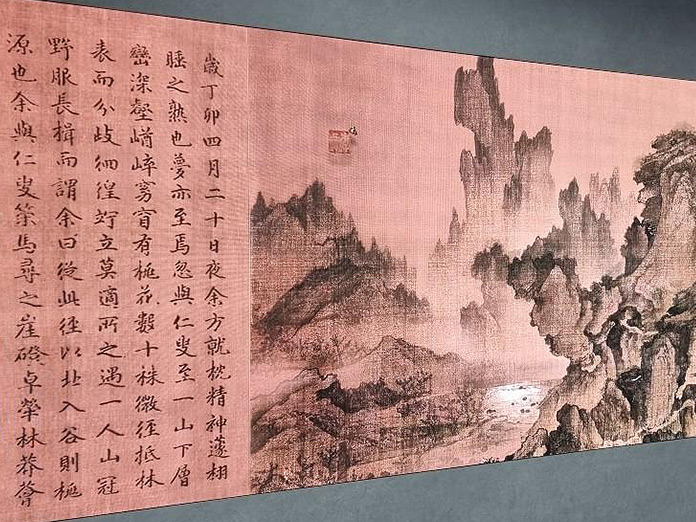 歲丁卯四月二十日夜余方就枕精神蘧栩
睡之熟也夢亦至焉忽與仁叟至一山下層
巒深壑崷崒窈窅有桃花數十株微徑抵林
表而分歧徊徨竚立莫適所之遇一人山冠
野服長揖而謂余曰從此徑以北入谷則桃
源也余與仁叟策馬尋之崖磴卓犖林莽薈